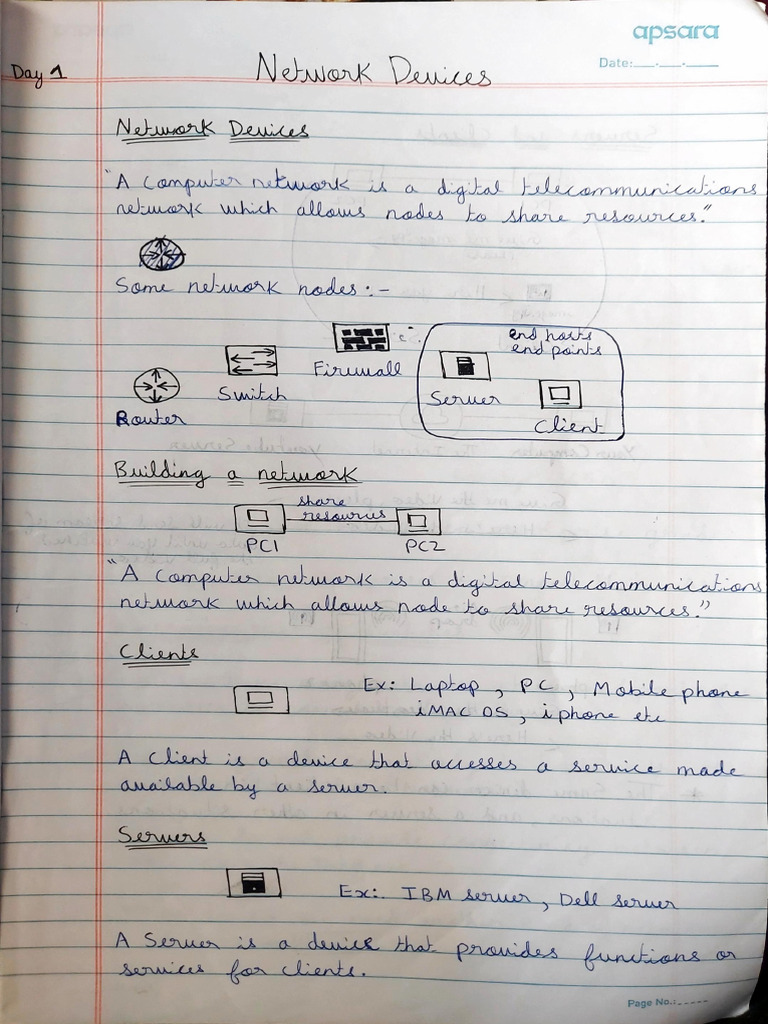 apsara
Date:__.__.__
Day 1
Network Devices
Network Devices
"A computer network is a digital telecommunications
network which allows nodes to share resources."
Some network nodes :-
Router
Switch
Firewall
end hosts
end points
Server
Client
Building a network
share
resources
PC1
PC2
"A computer network is a digital telecommunications
network which allows node to share resources."
Clients
Ex: Laptop, PC, Mobile phone
iMAC OS, iphone etc
A client is a device that accesses a service made
available by a server.
Servers
Ex:. IBM server, Dell server
A Server is a device that provides functions or
services for clients.
Page No.:-----